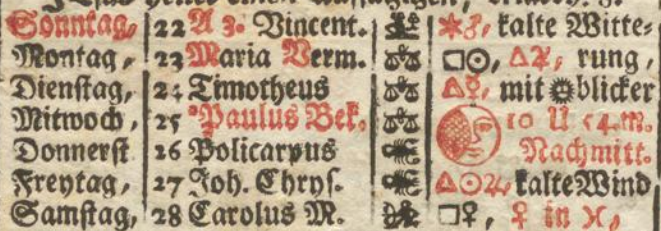 Sonntag, 22 A 3. Vincent. ✶♂, kalte Witte-
Montag, 23 Maria Verm. ♎ □☉, △♃, rung,
Dienstag, 24 Timotheus ♎ △☿, mit ☼blicker
Mitwoch, 25 Paulus Bek. ♎ 10 U 54. m.
Donnerst 26 Policarpus ♏ Nachmitt.
Freytag, 27 Joh. Chrys. ♏ △☉♃, kalte Wind
Samstag, 28 Carolus M. □♀, ♀ in ♓,